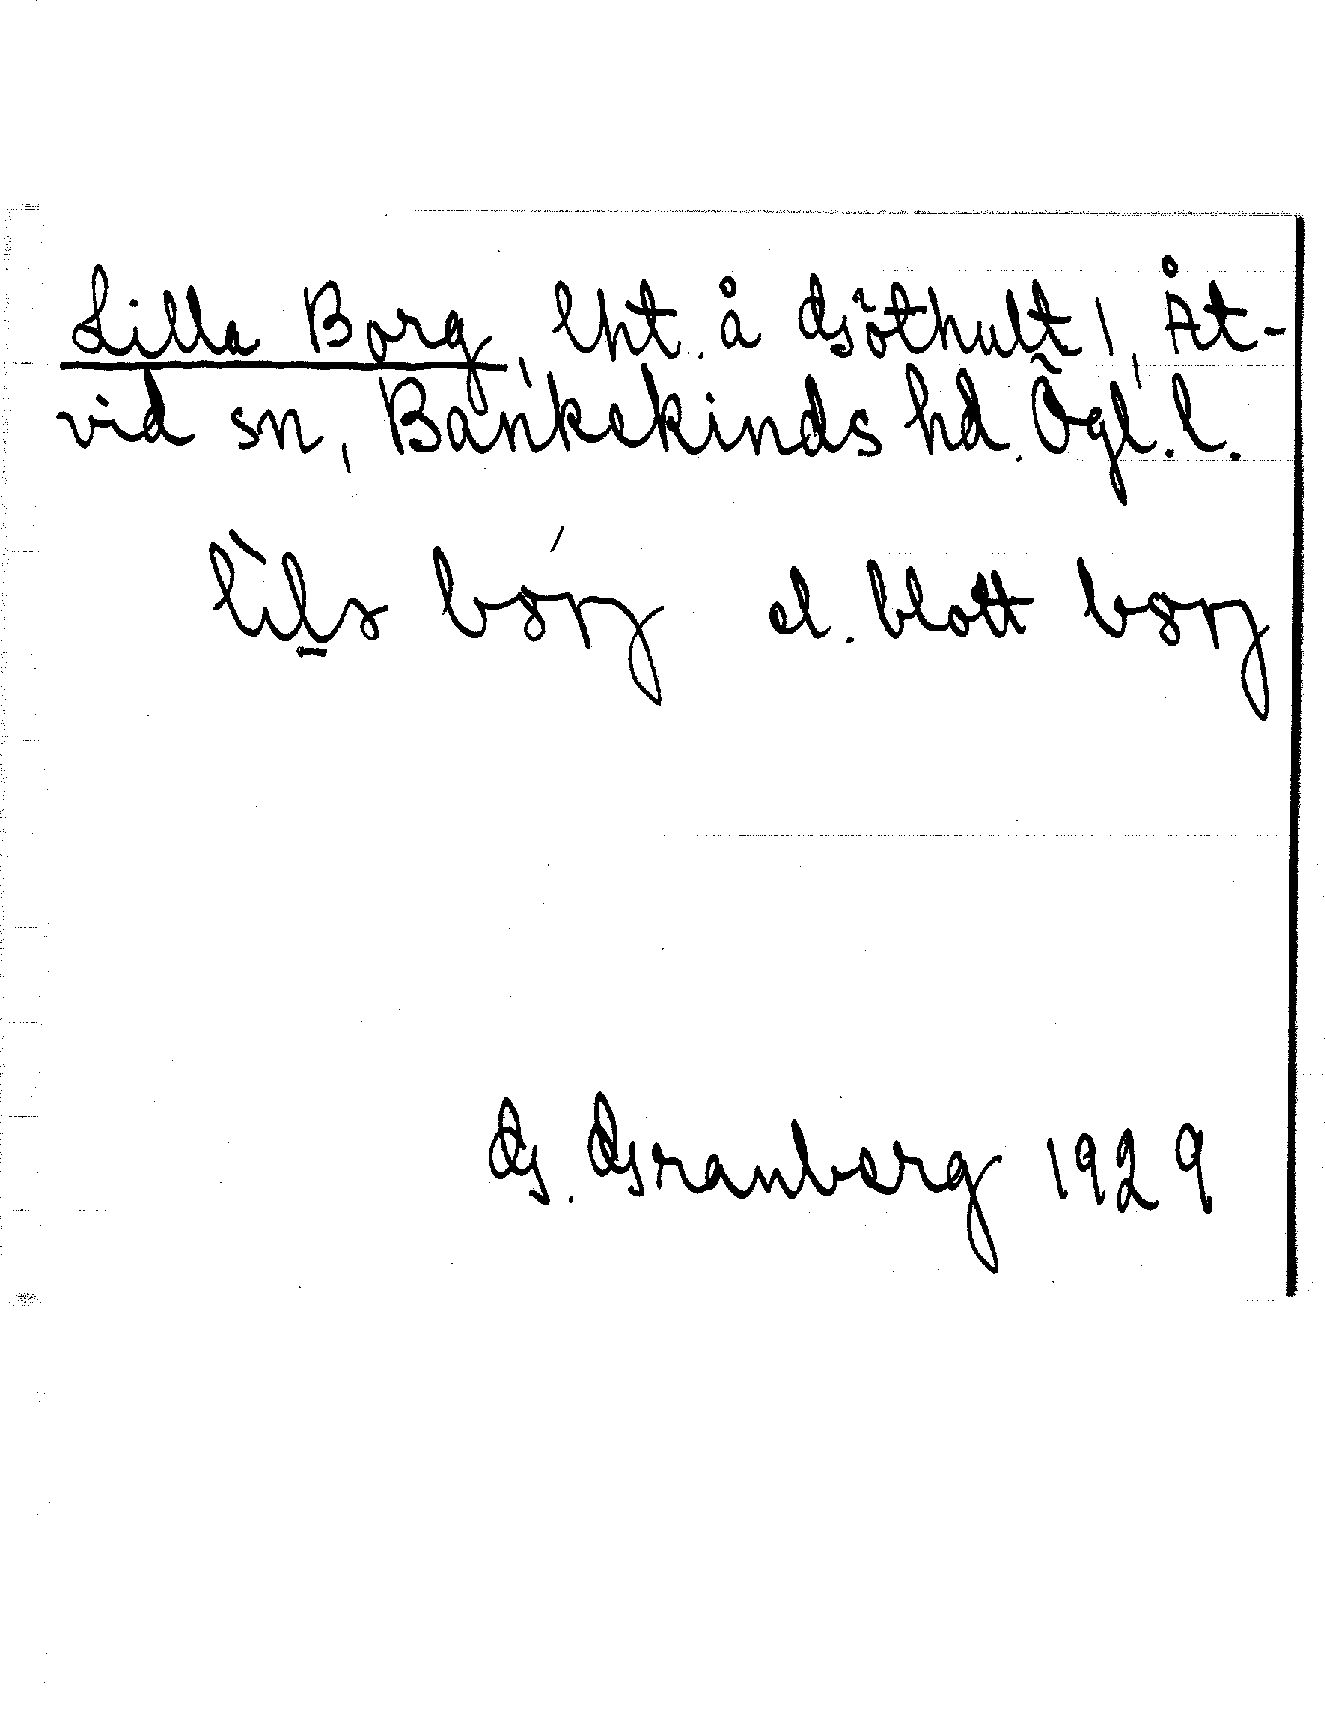 Lilla Borg, lht. å Göthult 1, Åt-
vid sn, Bankekinds hd. Ögl. l.
el. blott
G. Granberg 1929